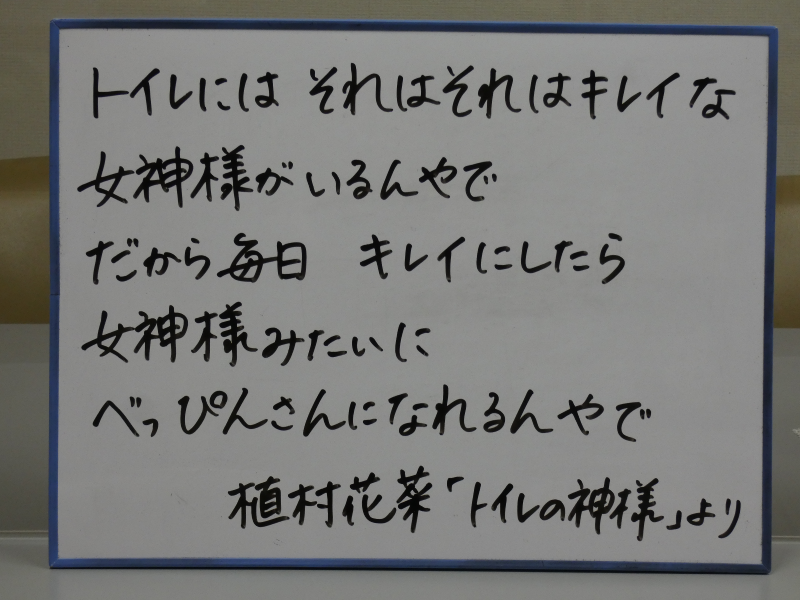 トイレには それはそれはキレイな
女神様がいるんやで
だから毎日 キレイにしたら
女神様みたいに
べっぴんさんになれるんやで
植村花菜「トイレの神様」より